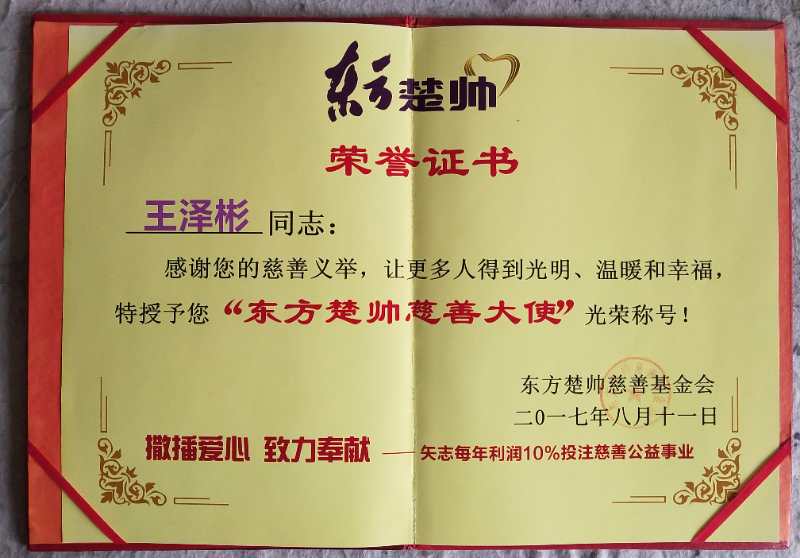 东方楚帅
荣誉证书
王泽彬 同志：
感谢您的慈善义举，让更多人得到光明、温暖和幸福，
特授予您“东方楚帅慈善大使”光荣称号！
东方楚帅慈善基金会
二0一七年八月十一日
撒播爱心 致力奉献——矢志每年利润10%投注慈善公益事业